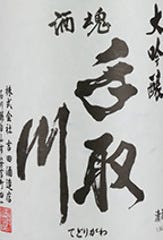 大吟醸
酒魂
手取川
てどりがわ
株式会社 吉田酒造店